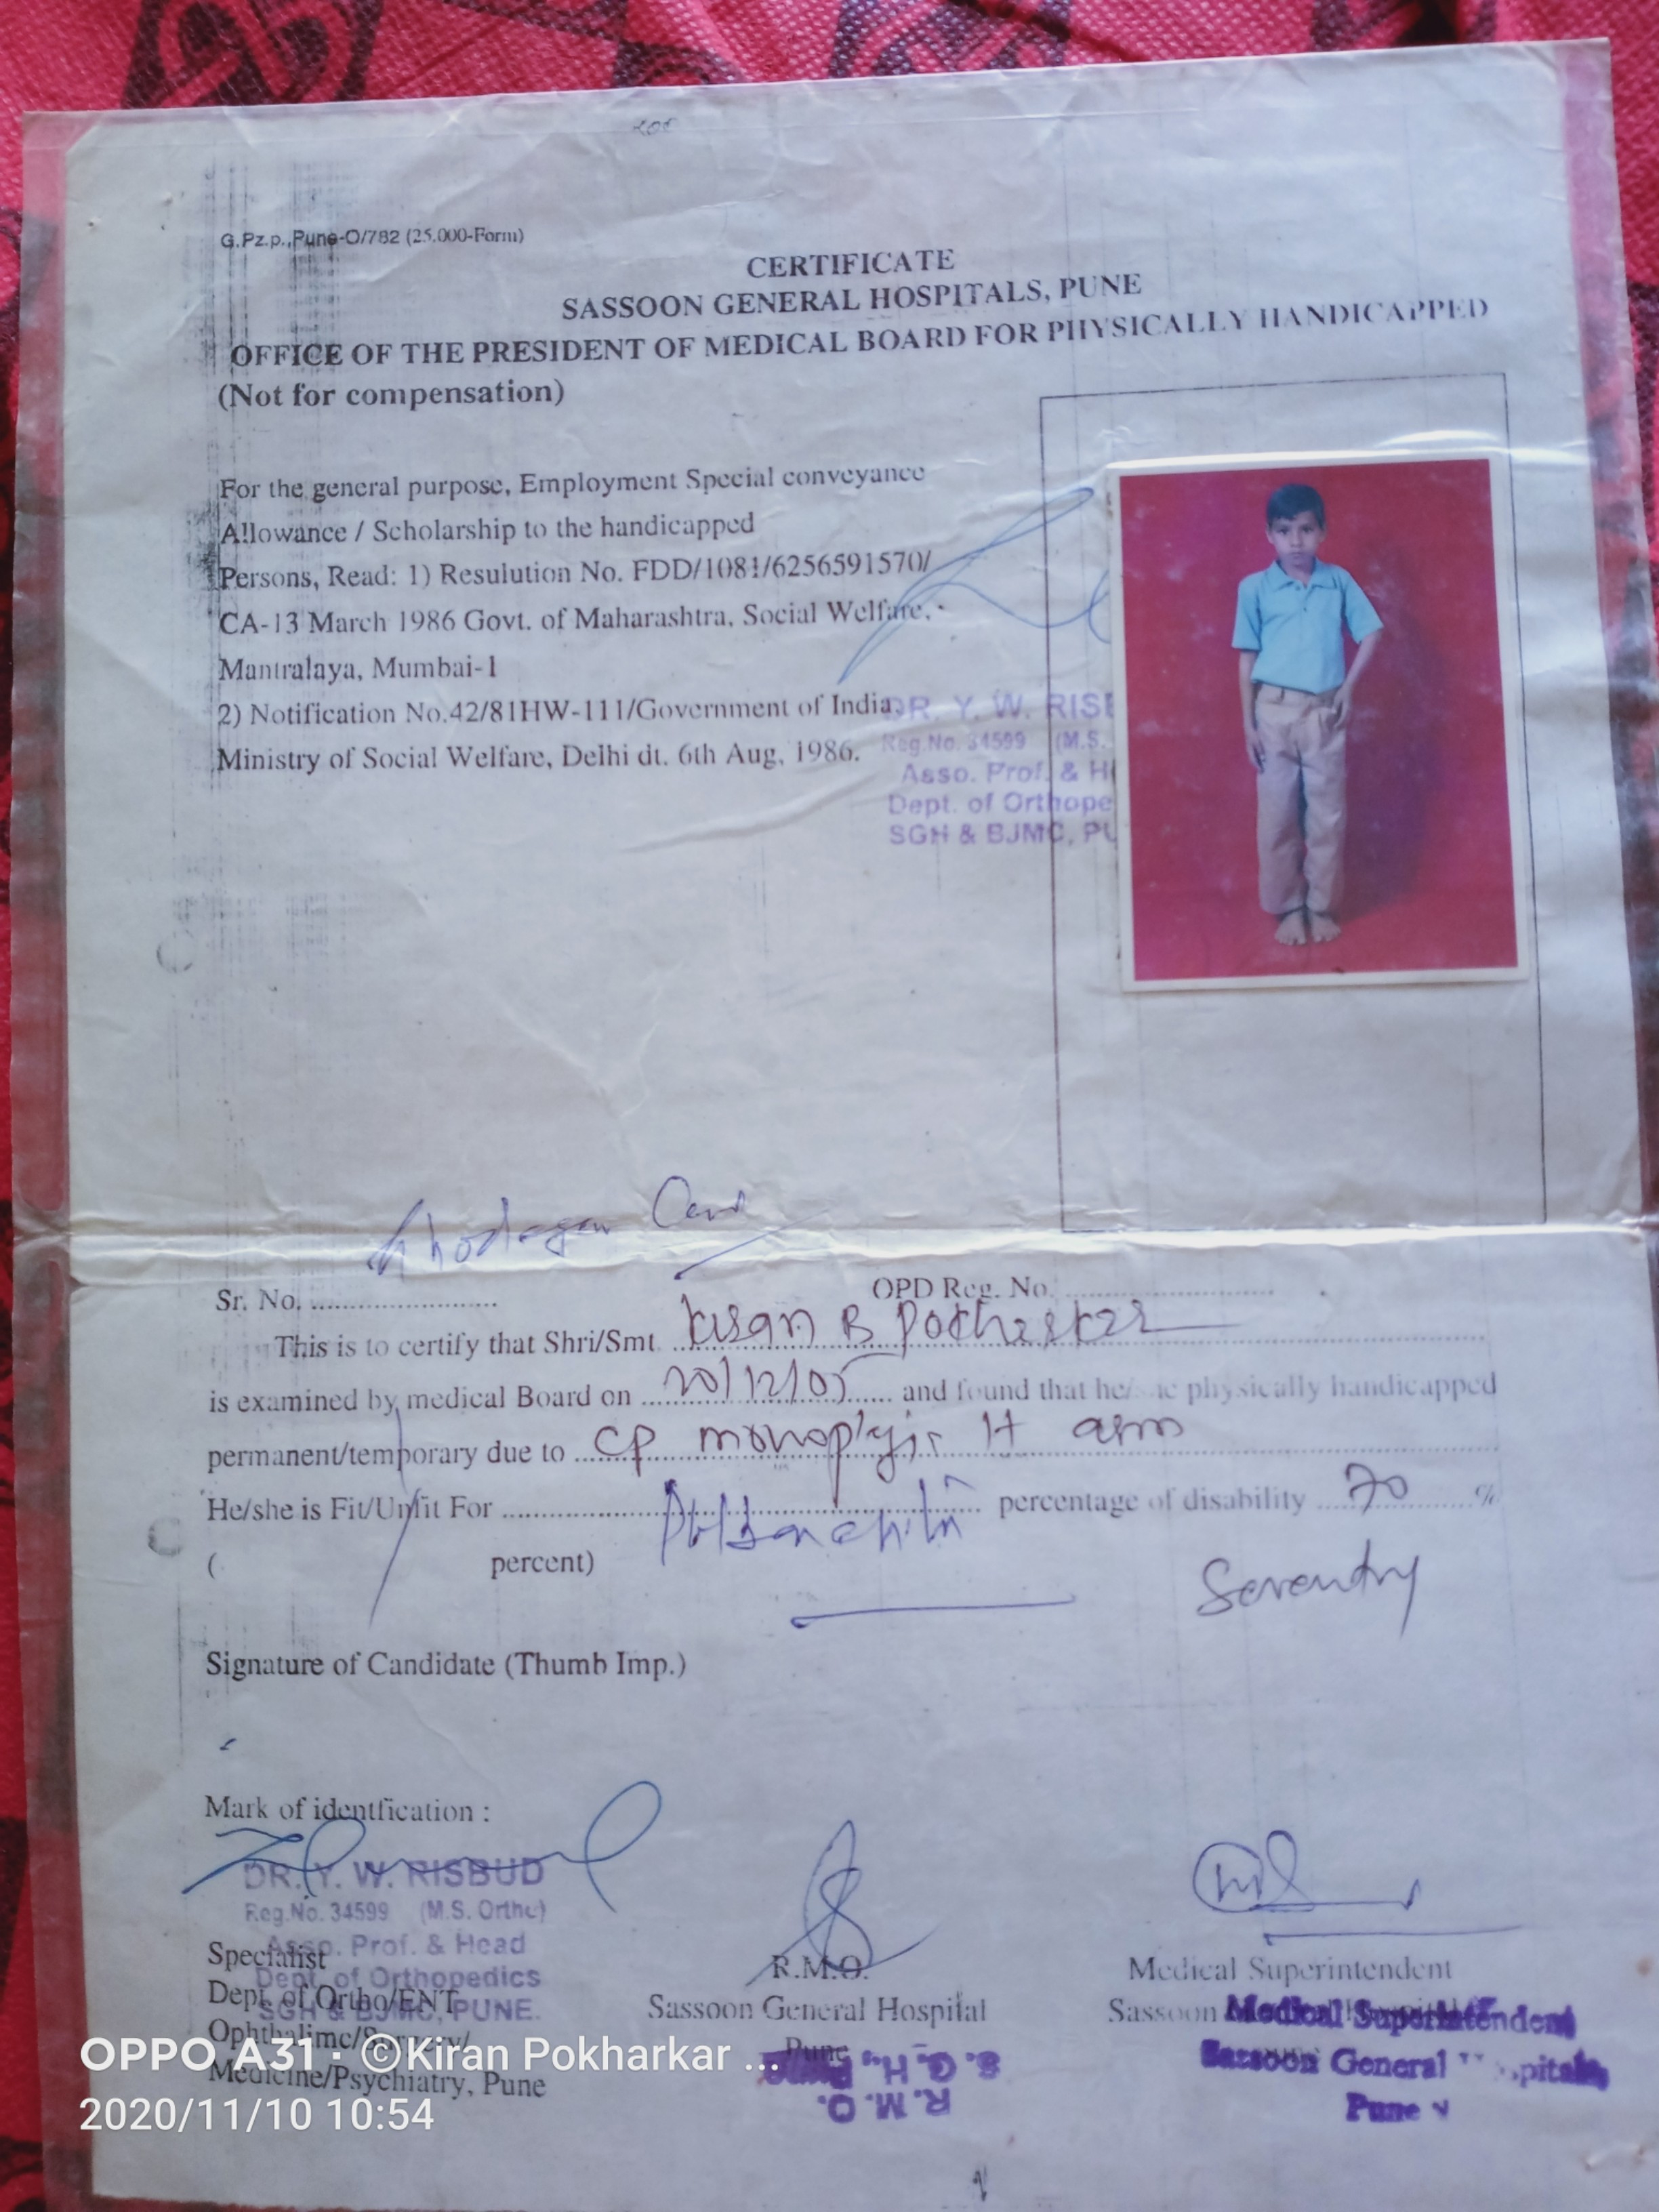 G.Pz.p.,Pune-O/782 (25.000-Form)
CERTIFICATE
SASSOON GENERAL HOSPITALS, PUNE
OFFICE OF THE PRESIDENT OF MEDICAL BOARD FOR PHYSICALLY HANDICAPPED
(Not for compensation)
For the general purpose, Employment Special conveyance
Allowance / Scholarship to the handicapped
Persons, Read: 1) Resulution No. FDD/1081/6256591570/
CA-13 March 1986 Govt. of Maharashtra, Social Welfare,
Mantralaya, Mumbai-1
2) Notification No.42/81HW-111/Government of India
Ministry of Social Welfare, Delhi dt. 6th Aug, 1986.
DR. Y. W. RISB
Reg.No. 34599 (M.S.
Asso. Prof. & H
Dept. of Orthope
SGH & BJMC, PU
Sr. No. ........................ OPD Reg. No. ...........................
This is to certify that Shri/Smt. Kiran B Pokharkar
is examined by medical Board on 20/12/05 and found that he/she physically handicapped
permanent/temporary due to CP monoplegia lt arm
He/she is Fit/Unfit For ........................ percentage of disability 70 %
( percent) Seventy
Signature of Candidate (Thumb Imp.)
Mark of identfication :
DR. Y. W. RISBUD
Reg.No. 34599 (M.S. Ortho)
Asso. Prof. & Head
Dept. of Orthopedics
SGH & BJMC, PUNE.
Specialist
Dept. of Ortho/ENT
Ophthalimc/Surgery/
Medicine/Psychiatry, Pune
R.M.O.
Sassoon General Hospital
Pune
R. M. O.
S. G. H., Pune
Medical Superintendent
Sassoon
Medical Superintendent
Sassoon General Hospitals
Pune
OPPO A31 · ©Kiran Pokharkar ...
2020/11/10 10:54